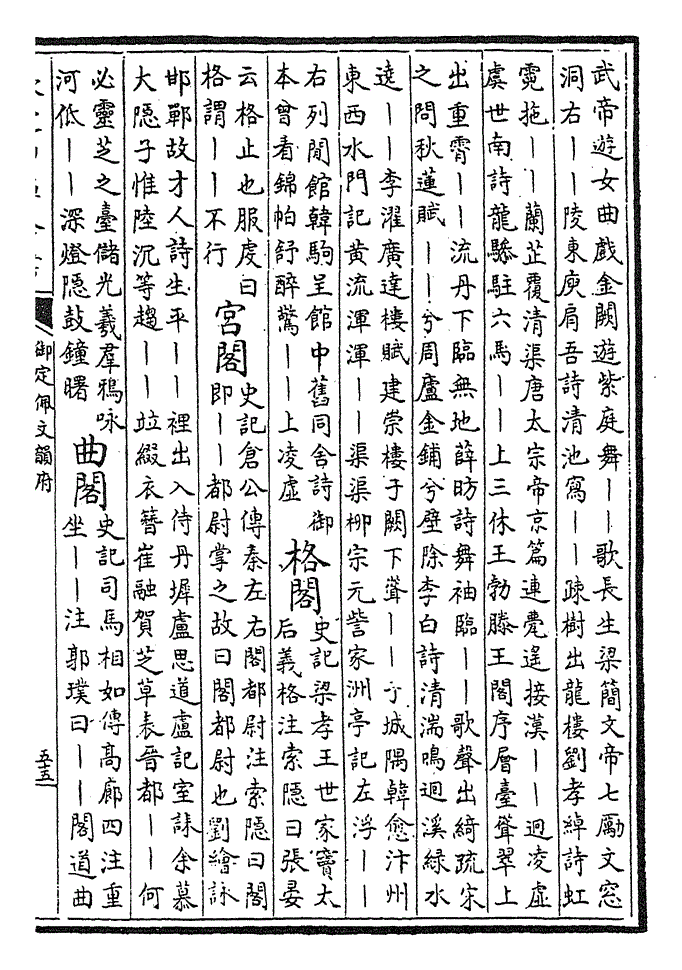 武帝遊女曲戲金闕遊紫庭舞——歌長生梁簡文帝七勵文窓
洞右——陵東庾肩吾詩清池寫——疎樹出龍樓劉孝綽詩虹
霓拖——蘭芷覆清渠唐太宗帝京篇連甍遙接漢——迥凌虛
虞世南詩龍驂駐六馬——上三休王勃滕王閣序層臺聳翠上
出重霄——流丹下臨無地薛昉詩舞袖臨——歌聲出綺疏宋
之問秋蓮賦——兮周廬金鋪兮壁除李白詩清湍鳴迴溪綠水
遶——李濯廣達樓賦建崇樓于闕下聳——于城隅韓愈汴州
東西水門記黃流渾渾——渠渠柳宗元訾家洲亭記左浮——
右列閒館韓駒呈館中舊同舍詩御
本曾看錦帕舒醉驚——上凌虛
格閣
史記梁孝王世家竇太
后義格注索隱曰張晏
云格止也服虔曰
格謂——不行
宮閣
史記倉公傳秦左右閣都尉注索隱曰閣
即——都尉掌之故曰閣都尉也劉繪詠
邯鄲故才人詩生平——裡出入侍丹墀盧思道盧記室誄余慕
大隱子惟陸沉等趨——竝綴衣簪崔融賀芝草表晉都——何
必靈芝之臺儲光羲羣鴉咏
河低——深燈隱鼓鐘曙
曲閣
史記司馬相如傳高廊四注重
坐——注郭璞曰——閣道曲
御定佩文韻府
五十五